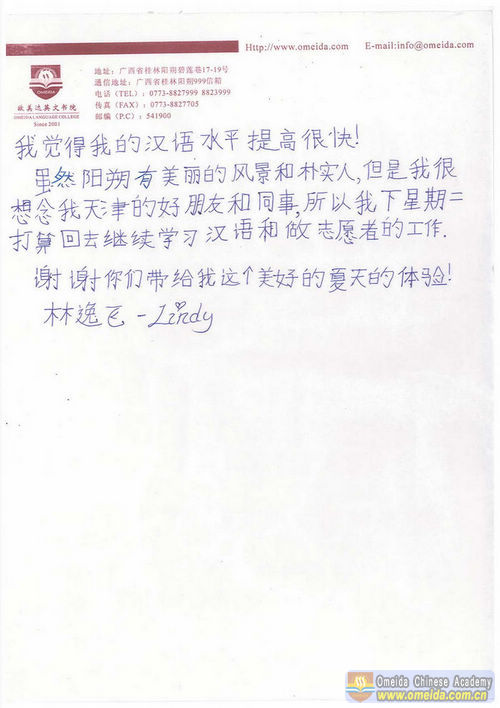 Http://www.omeida.com E-mail:info@omeida.com
OMEIDA
欧美达英文书院
OMEIDA LANGUAGE COLLEGE
Since 2001
地址：广西省桂林阳朔碧莲巷17-19号
通信地址：广西省桂林阳朔999信箱
电话（TEL）：0773-8827999 8823999
传真（FAX）：0773-8827705
邮编（P.C）：541900
我觉得我的汉语水平提高很快!
虽然阳朔有美丽的风景和朴实人,但是我很
想念我天津的好朋友和同事,所以我下星期二
打算回去继续学习汉语和做志愿者的工作.
谢谢你们带给我这个美好的夏天的体验!
林逸飞 - Lindy
Omeida Chinese Academy
www.omeida.com.cn